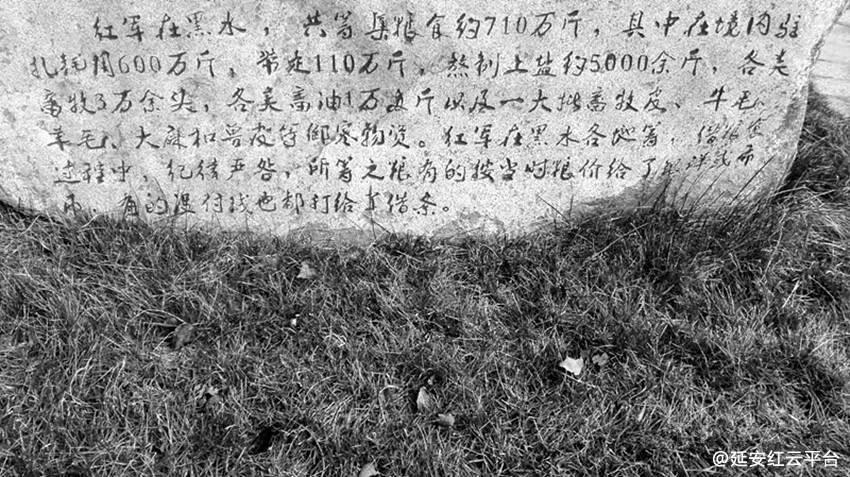 红军在黑水，共筹集粮食约710万斤，其中在境内驻
扎耗用600万斤，带走110万斤，熬制土盐约5000余斤，各类
畜牧3万余头，各类畜油1万余斤以及一大批畜牧皮、牛毛、
羊毛、大麻和兽皮等御寒物资。红军在黑水各地筹、借粮食
过程中，纪律严明，所筹之粮有的按当时粮价给了银洋或
币，有的没付钱也都打给了借条。
@延安红云平台